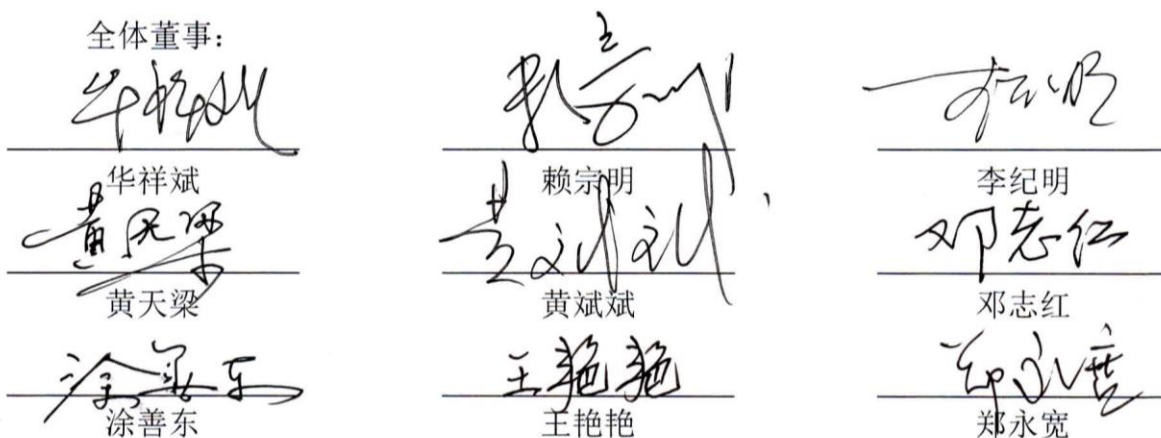 全体董事：
华祥斌 赖宗明 李纪明
华祥斌 赖宗明 李纪明
黄天梁 黄斌斌 邓志红
黄天梁 黄斌斌 邓志红
涂善东 王艳艳 郑永宽
涂善东 王艳艳 郑永宽